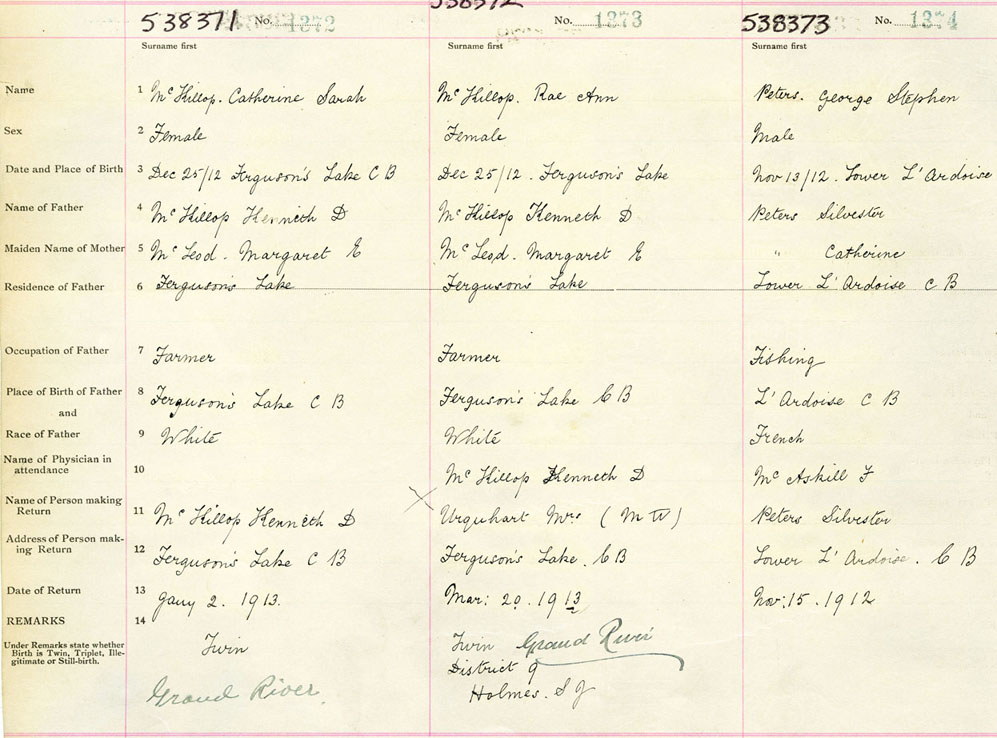 538371 No. 1372
538372 No. 1373
538373 No. 1374
Surname first
Surname first
Surname first
Name 1 Mc Killop. Catherine Sarah
Mc Killop. Rae Ann
Peters. George Stephen
Sex 2 Female
Female
Male
Date and Place of Birth 3 Dec 25/12 Ferguson's Lake C B
Dec 25/12. Ferguson's Lake
Nov 13/12. Lower L'Ardoise
Name of Father 4 Mc Killop Kenneth D
Mc Killop Kenneth D
Peters Silvester
Maiden Name of Mother 5 Mc Leod. Margaret E
Mc Leod. Margaret E
" Catherine
Residence of Father 6 Ferguson's Lake
Ferguson's Lake
Lower L'Ardoise C B
Occupation of Father 7 Farmer
Farmer
Fishing
Place of Birth of Father 8 Ferguson's Lake C B
Ferguson's Lake C B
L'Ardoise C B
and
Race of Father 9 White
White
French
Name of Physician in
attendance 10
Mc Killop Kenneth D
Mc Askill F
Name of Person making
Return 11 Mc Killop Kenneth D
Urquhart Mrs (M W)
Peters Silvester
Address of Person mak-
ing Return 12 Ferguson's Lake C B
Ferguson's Lake. C B
Lower L'Ardoise. C B
Date of Return 13 Jany 2. 1913.
Mar: 20. 1913
Nov: 15. 1912
REMARKS 14
Under Remarks state whether
Birth is Twin, Triplet, Ille-
gitimate or Still-birth.
Twin
Grand River
Twin Grand River
District 9
Holmes. S J